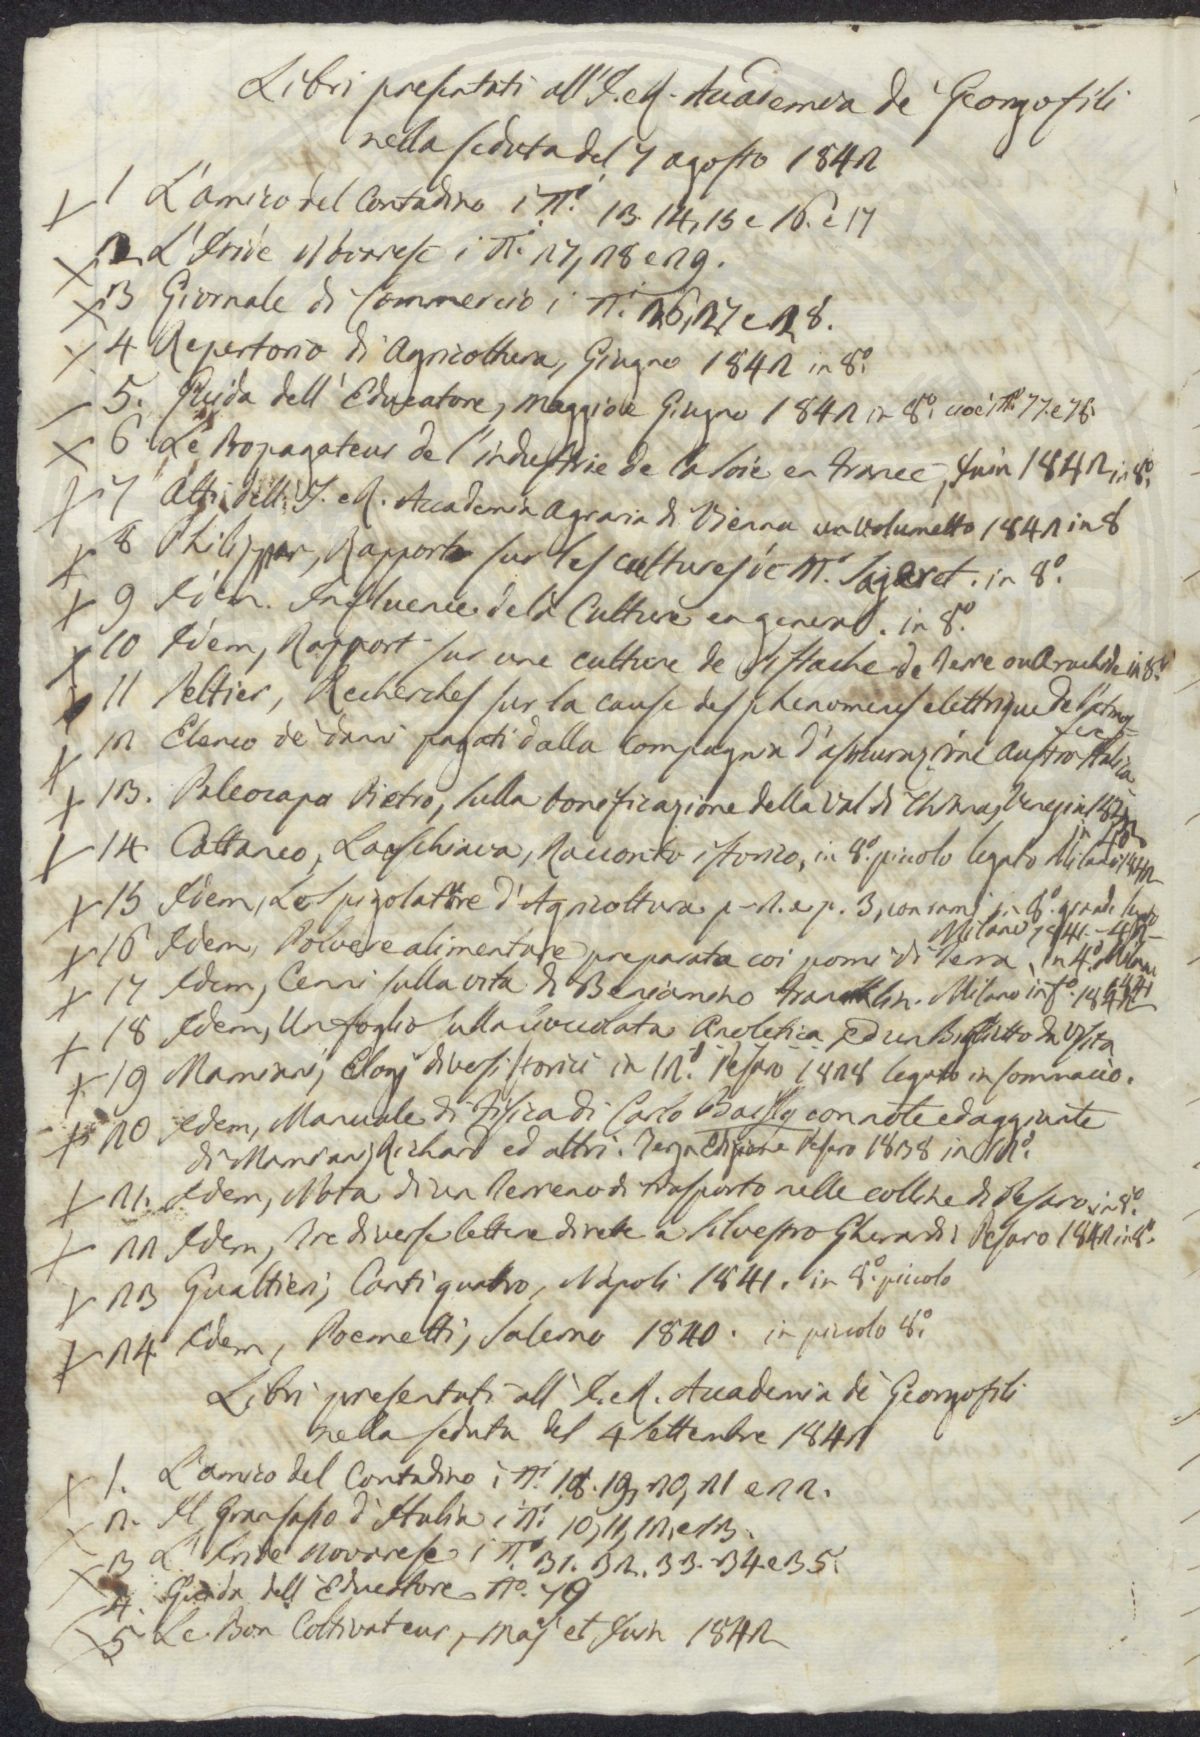 Libri presentati all'I. e R. Accademia de' Georgofili
nella seduta del 7 agosto 1842
1 L'amico del Contadino i Ni. 13. 14, 15 e 16. e 17
2 L'Iride Novarese i Ni. 27, 28 e 29.
3 Giornale di Commercio i Ni. 26, 27 e 28.
4 Repertorio di Agricoltura, Giugno 1842 in 8º.
5. Guida dell'Educatore, Maggio e Giugno 1842 in 8º. cioè i Ni. 77. e 78.
6 Le Propagateur de l'industrie de la Soie en France, Juin 1842 in 8º.
7 Atti dell' I. e R. Accademia Agraria di Vienna un volumetto 1842 in 8
8 Philippar, Rapport sur les cultures de Mr. Sageret. in 8º.
9 Idem. Influence de la Culture en general. in 8º.
10 Idem, Rapport sur une culture de Pistache de Terre ou Arachide in 8º.
11 Peltier, Recherches sur la cause des phenomenes elettrique de l'atmos=
12 Elenco de' danni pagati dalla Compagnia d'assicurazione Austro-Italica
13. Paleocapa Pietro, sulla bonificazione della Val di Chiana, Venezia 1842
14 Cattaneo, La Schiava, Racconto istorico, in 8º. piccolo legato Milano 1842
15 Idem, Lo Spigolatore d'Agricoltura p. 2. e p. 3, con rami in 8º. grande legato
Milano 1841.-42-
16 Idem, Polvere alimentare preparata coi pomi di terra, in 4º. Milano
1841
17 Idem, Cenni sulla vita di Beniamino Franklin. Milano in fº. 1842
18 Idem, Un foglio sulla cioccolata Analetica, ed un Biglietto da Visita
19 Mamiani, Elogj diversi storici in 12º. Pesaro 1828 legato in sommacco.
20 Idem, Manuale di Fisica di Carlo Bailly con note ed aggiunte
di Mamiani, Richard ed altri. Terza Edizione Pesaro 1838 in 12º.
21. Idem, Nota di un Terreno di trasporto nelle colline di Pesaro, in 8º.
22 Idem, Tre diverse lettere dirette a Silvestro Gherardi Pesaro 1842 in 8º.
23 Gualtieri, Canti quatro, Napoli 1841. in 8º. piccolo
24 Idem, Poemetti, Salerno 1840. in piccolo 8º.
Libri presentati all' I. e R. Accademia de' Georgofili
nella seduta del 4 Settembre 1842
1. L'amico del Contadino i Ni. 18. 19, 20, 21 e 22.
2. Il Gran Sasso d'Italia i Ni. 10, 11, 12, e 13.
3 L'Iride Novarese i Ni. 31. 32. 33. 34 e 35.
4. Guida dell'Educatore Nº. 79
5 Le Bon Cultivateur, Maj et Juin 1842